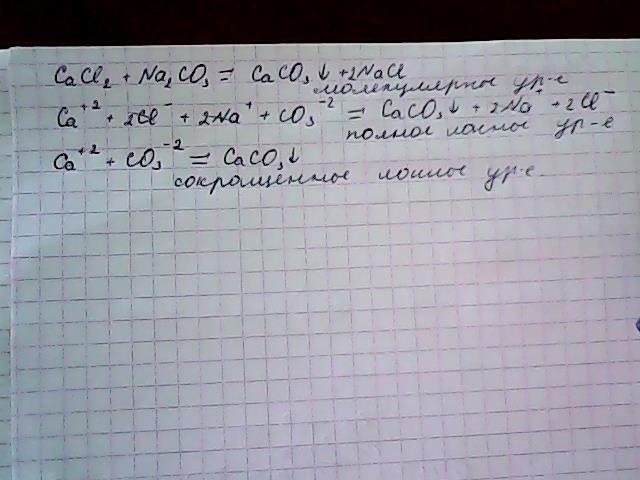 CaCl₂ + Na₂CO₃ = CaCO₃↓ + 2NaCl
молекулярное ур-е
Ca⁺² + 2Cl⁻ + 2Na⁺ + CO₃⁻² = CaCO₃↓ + 2Na⁺ + 2Cl⁻
полное ионное ур-е
Ca⁺² + CO₃⁻² = CaCO₃↓
сокращенное ионное ур-е.